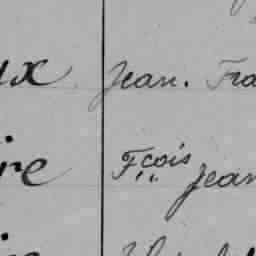 ux Jean. Fra
ire Fçois Jean